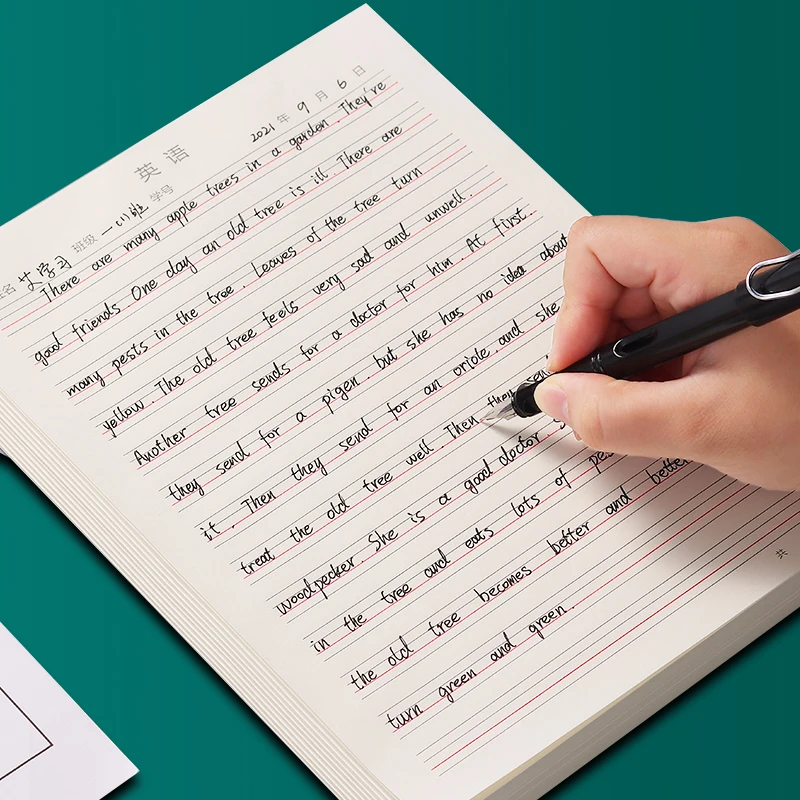 英语
2021年 9月 6日
名 艾学习 班级 一(1)班 学号
There are many apple trees in a garden. They're
good friends. One day an old tree is ill. There are
many pests in the tree. Leaves of the tree turn
yellow. The old tree feels very sad and unwell.
Another tree sends for a doctor for him. At first
they send for a pigen. but she has no idea about
it. Then they send for an oriole. and she
treat the old tree well. Then they
woodpecker. She is a good doctor
in the tree and eats lots of
the old tree becomes better and better
turn green and green.
共